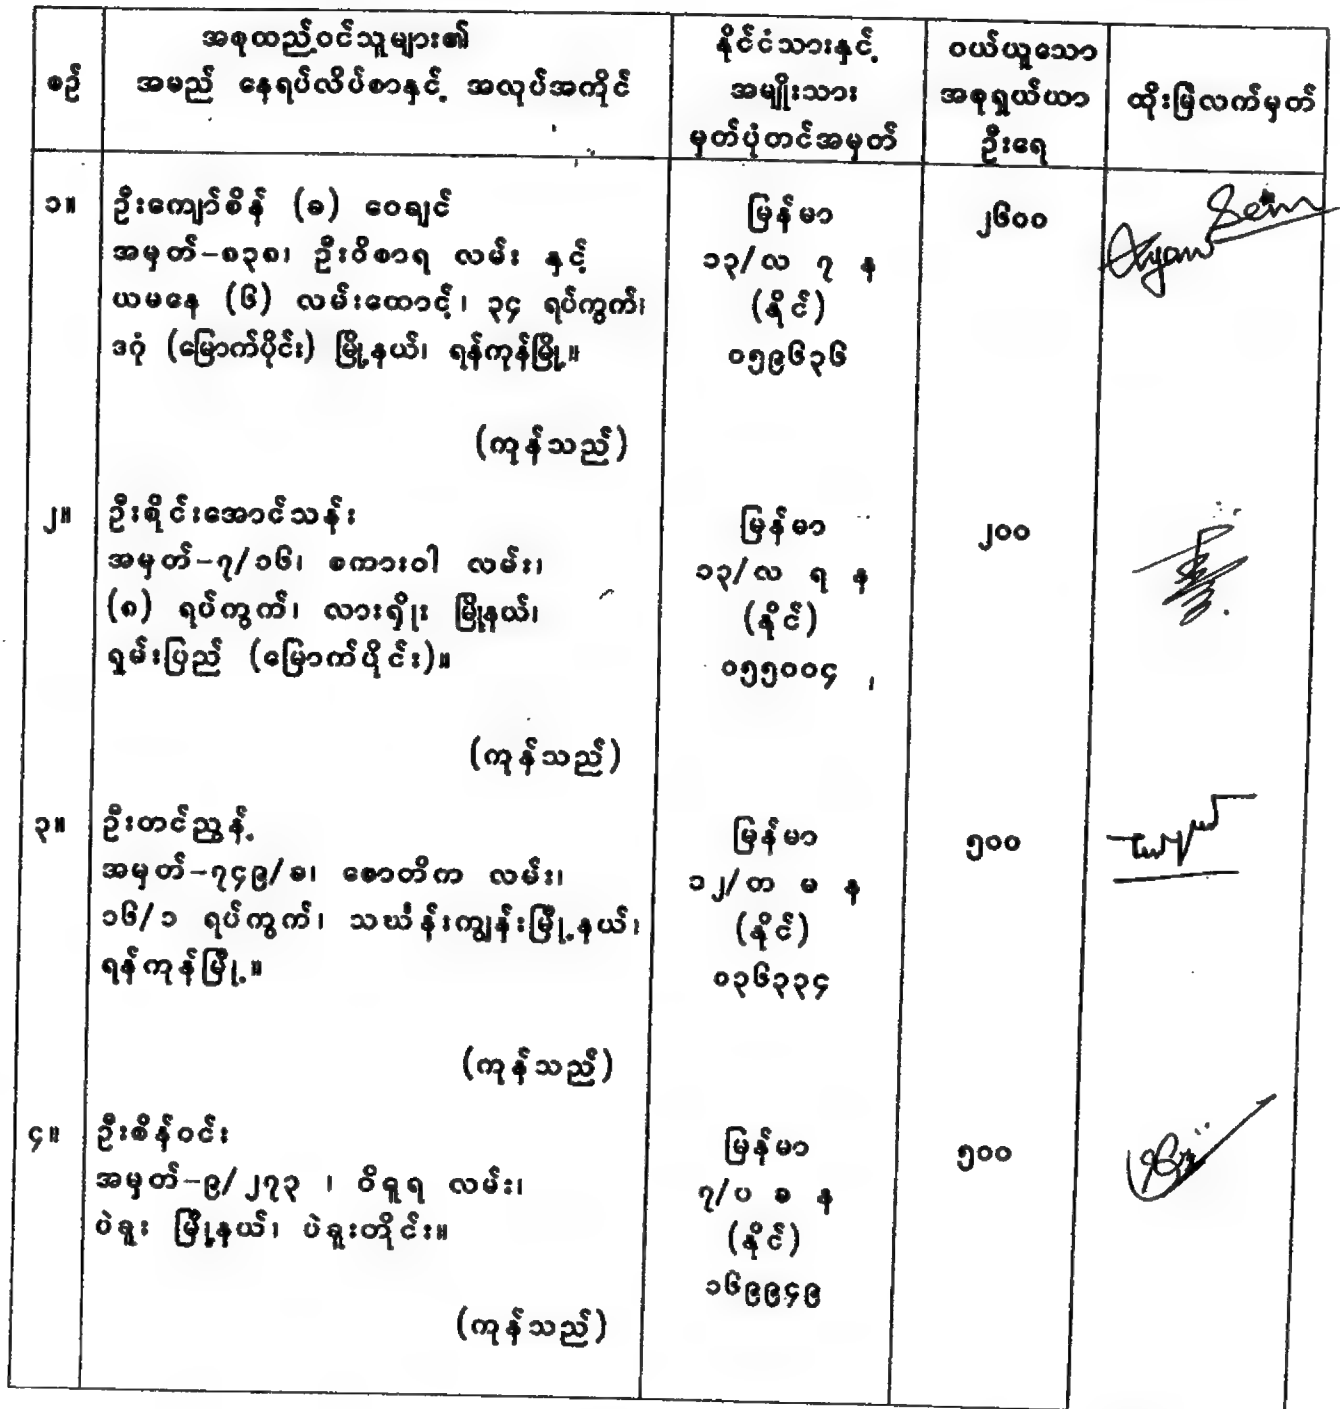 စဉ်
အစုထည့်ဝင်သူများ၏
အမည် နေရပ်လိပ်စာနှင့် အလုပ်အကိုင်
နိုင်ငံသားနှင့်
အမျိုးသား
မှတ်ပုံတင်အမှတ်
ဝယ်ယူသော
အစုရှယ်ယာ
ဦးရေ
ထိုးမြဲလက်မှတ်
၁။
ဦးကျော်စိန် (ခ) ဝေချင်
အမှတ်-၈၃၈၊ ဦးဝိစာရ လမ်း နှင့်
ယမနေ (၆) လမ်းထောင့်၊ ၃၄ ရပ်ကွက်၊
ဒဂုံ (မြောက်ပိုင်း) မြို့နယ်၊ ရန်ကုန်မြို့။
(ကုန်သည်)
မြန်မာ
၁၃/လ ၇ န
(နိုင်)
၀၅၉၆၃၆
၂၆၀၀
Kyaw Sein
၂။
ဦးစိုင်းအောင်သန်း
အမှတ်-၇/၁၆၊ စကားဝါ လမ်း၊
(၈) ရပ်ကွက်၊ လားရှိုး မြို့နယ်၊
ရှမ်းပြည် (မြောက်ပိုင်း)။
(ကုန်သည်)
မြန်မာ
၁၃/လ ရ န
(နိုင်)
၀၅၅၀၀၄
၂၀၀
၃။
ဦးတင်ညွန့်
အမှတ်-၇၄၉/ခ၊ ဇောတိက လမ်း၊
၁၆/၁ ရပ်ကွက်၊ သင်္ဃန်းကျွန်းမြို့နယ်၊
ရန်ကုန်မြို့။
(ကုန်သည်)
မြန်မာ
၁၂/တ မ န
(နိုင်)
၀၃၆၃၃၄
၅၀၀
၄။
ဦးစိန်ဝင်း
အမှတ်-၉/၂၇၃ ၊ ဝိရူရ လမ်း၊
ပဲခူး မြို့နယ်၊ ပဲခူးတိုင်း။
(ကုန်သည်)
မြန်မာ
၇/ပ ခ န
(နိုင်)
၁၆၉၉၄၉
၅၀၀